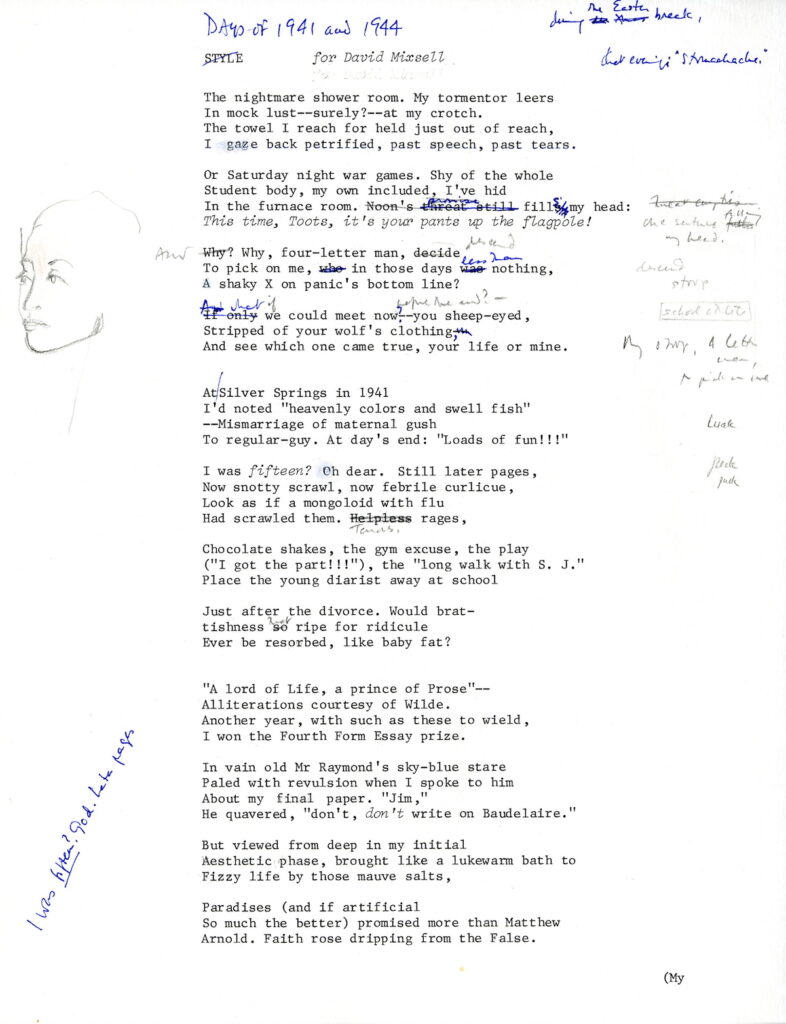 DAYS of 1941 and 1944
during the Easter the Xmas break,
STYLE for David Mixsell
that evening's "Stomachache."
The nightmare shower room. My tormentor leers
In mock lust--surely?--at my crotch.
The towel I reach for held just out of reach,
I gaze back petrified, past speech, past tears.
Or Saturday night war games. Shy of the whole
Student body, my own included, I've hid
In the furnace room. Noon's threat still promise fills my head:
one sentence
my head.
This time, Toots, it's your pants up the flagpole!
And Why? Why, four-letter man, decide descend
To pick on me, who in those days was less than nothing,
A shaky X on panic's bottom line?
descend
stoop
And what if If only we could meet now before the end?--you sheep-eyed,
Stripped of your wolf's clothing,
And see which one came true, your life or mine.
At Silver Springs in 1941
I'd noted "heavenly colors and swell fish"
--Mismarriage of maternal gush
To regular-guy. At day's end: "Loads of fun!!!"
I was fifteen? Oh dear. Still later pages,
Now snotty scrawl, now febrile curlicue,
Look as if a mongoloid with flu
Had scrawled them. Helpless rages,
Tears.
Chocolate shakes, the gym excuse, the play
("I got the part!!!"), the "long walk with S. J."
Place the young diarist away at school
Just after the divorce. Would brat-
tishness so ripe for ridicule
Ever be resorbed, like baby fat?
"A lord of Life, a prince of Prose"--
Alliterations courtesy of Wilde.
Another year, with such as these to wield,
I won the Fourth Form Essay prize.
In vain old Mr Raymond's sky-blue stare
Paled with revulsion when I spoke to him
About my final paper. "Jim,"
He quavered, "don't, don't write on Baudelaire."
But viewed from deep in my initial
Aesthetic phase, brought like a lukewarm bath to
Fizzy life by those mauve salts,
Paradises (and if artificial
So much the better) promised more than Matthew
Arnold. Faith rose dripping from the False.
I was fifteen? God. Late pages
(My